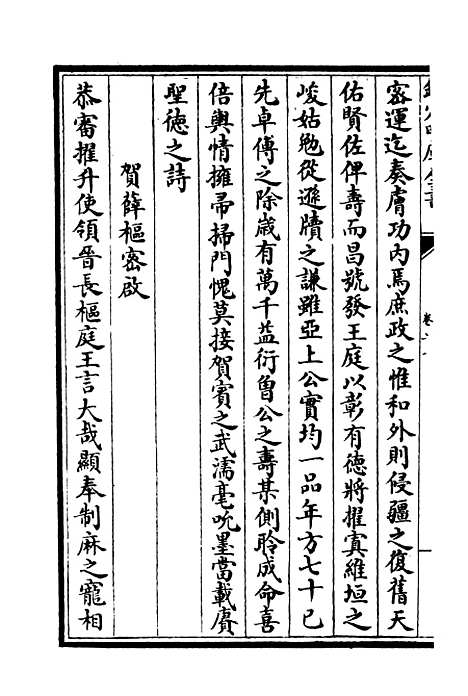 密運迄奏膚功内焉庶政之惟和外則侵疆之復舊天
佑賢佐俾壽而昌號發王庭以彰有徳將擢寘維垣之
峻姑勉從遜牘之謙雖亞上公實均一品年方七十已
先卓傅之除嵗有萬千益衍魯公之壽某側聆成命喜
倍輿情擁帚掃門愧莫接賀賓之武濡毫吮墨當載賡
聖徳之詩
賀薛樞密啟
恭審擢升使領晉長樞庭王言大哉顯奉制麻之寵相